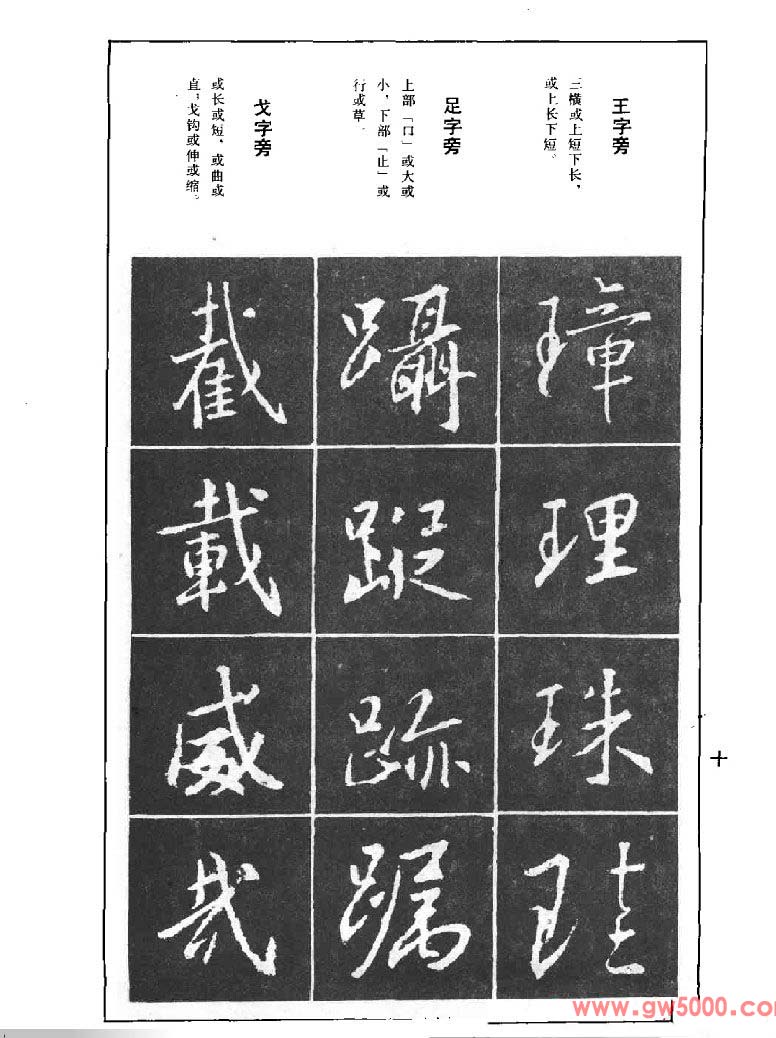 王字旁
三横或上短下长，
或上长下短。
璋
理
珠
珪
足字旁
上部「口」或大或
小，下部「止」或
行或草。
躡
蹤
跡
戈字旁
或长或短，或曲或
直；戈钩或伸或缩。
截
載
威
十
www.gw5000.com